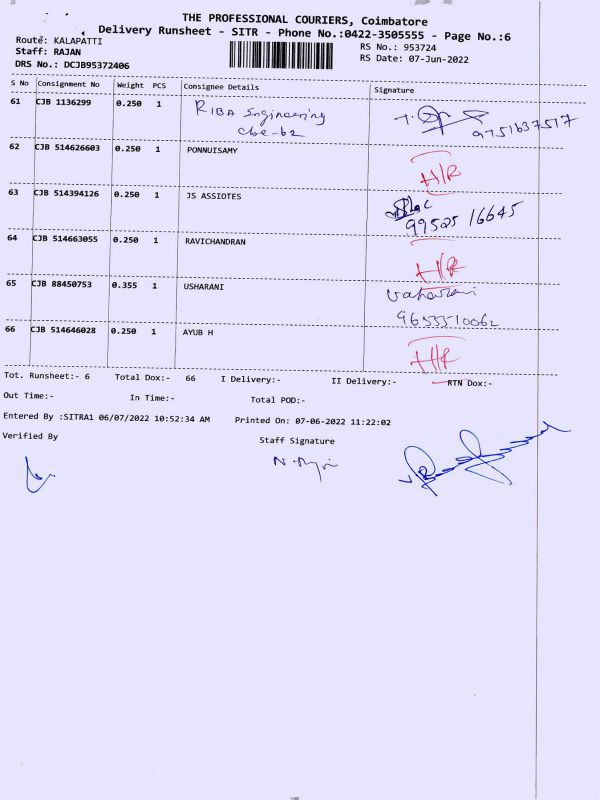 THE PROFESSIONAL COURIERS, Coimbatore
Delivery Runsheet - SITR - Phone No.:0422-3505555 - Page No.:6
Route: KALAPATTI
RS No.: 953724
Staff: RAJAN
RS Date: 07-Jun-2022
DRS No.: DCJB95372406
S No Consignment No Weight PCS Consignee Details Signature
61 CJB 1136299 0.250 1 RIBA Engineering
cbe-62
9751637517
62 CJB 514626603 0.250 1 PONNUISAMY H/R
63 CJB 514394126 0.250 1 JS ASSIOTES
99525 16645
64 CJB 514663055 0.250 1 RAVICHANDRAN H/R
65 CJB 88450753 0.355 1 USHARANI
9655510062
66 CJB 514646028 0.250 1 AYUB H H/R
Tot. Runsheet:- 6 Total Dox:- 66 I Delivery:- II Delivery:- RTN Dox:-
Out Time:- In Time:- Total POD:-
Entered By :SITRA1 06/07/2022 10:52:34 AM Printed On: 07-06-2022 11:22:02
Verified By Staff Signature